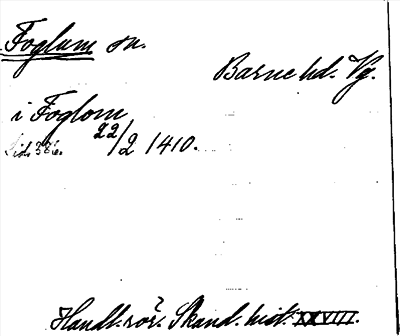 Foglum sn.
Barne hd. Vg.
i Foglom
Sid. 386. 22/2 1410.
Handl. rör. Skand. hist. XXVIII.